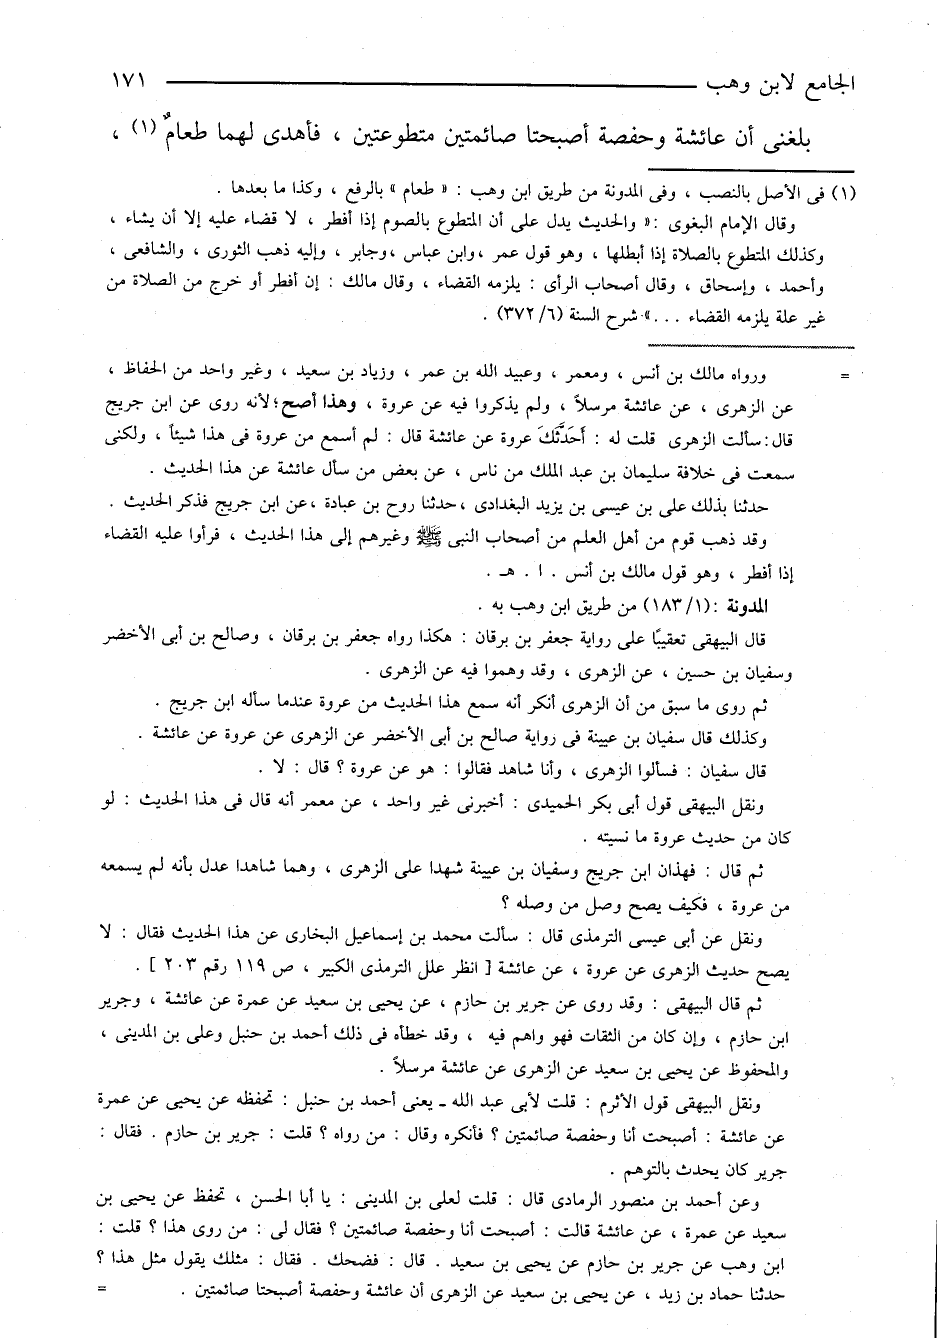 الجامع لابن وهب ١٧١
بلغنى أن عائشة وحفصة أصبحتا صائمتين متطوعتين ، فأهدى لهما طعامٌ (١) ،
(١) فى الأصل بالنصب ، وفى المدونة من طريق ابن وهب : « طعام » بالرفع ، وكذا ما بعدها .
وقال الإمام البغوى :« والحديث يدل على أن المتطوع بالصوم إذا أفطر ، لا قضاء عليه إلا أن يشاء ،
وكذلك المتطوع بالصلاة إذا أبطلها ، وهو قول عمر ،وابن عباس ،وجابر ، وإليه ذهب الثورى ، والشافعى ،
وأحمد ، وإسحاق ، وقال أصحاب الرأى : يلزمه القضاء ، وقال مالك : إن أفطر أو خرج من الصلاة من
غير علة يلزمه القضاء ...» شرح السنة (٦/ ٣٧٢) .
= ورواه مالك بن أنس ، ومعمر ، وعبيد الله بن عمر ، وزياد بن سعيد ، وغير واحد من الحفاظ ،
عن الزهرى ، عن عائشة مرسلاً ، ولم يذكروا فيه عن عروة ، وهذا أصح؛لأنه روى عن ابن جريج
قال:سألت الزهرى قلت له : أَحَدَّثَكَ عروة عن عائشة قال : لم أسمع من عروة فى هذا شيئاً ، ولكنى
سمعت فى خلافة سليمان بن عبد الملك من ناس ، عن بعض من سأل عائشة عن هذا الحديث .
حدثنا بذلك على بن عيسى بن يزيد البغدادى ،حدثنا روح بن عبادة ،عن ابن جريج فذكر الحديث .
وقد ذهب قوم من أهل العلم من أصحاب النبى ﷺ وغيرهم إلى هذا الحديث ، فرأوا عليه القضاء
إذا أفطر ، وهو قول مالك بن أنس . ا . هـ .
المدونة :(١/ ١٨٣) من طريق ابن وهب به .
قال البيهقى تعقيبًا على رواية جعفر بن برقان : هكذا رواه جعفر بن برقان ، وصالح بن أبى الأخضر
وسفيان بن حسين ، عن الزهرى ، وقد وهموا فيه عن الزهرى .
ثم روى ما سبق من أن الزهرى أنكر أنه سمع هذا الحديث من عروة عندما سأله ابن جريج .
وكذلك قال سفيان بن عيينة فى رواية صالح بن أبى الأخضر عن الزهرى عن عروة عن عائشة .
قال سفيان : فسألوا الزهرى ، وأنا شاهد فقالوا : هو عن عروة ؟ قال : لا .
ونقل البيهقى قول أبى بكر الحميدى : أخبرنى غير واحد ، عن معمر أنه قال فى هذا الحديث : لو
كان من حديث عروة ما نسيته .
ثم قال : فهذان ابن جريج وسفيان بن عيينة شهدا على الزهرى ، وهما شاهدا عدل بأنه لم يسمعه
من عروة ، فكيف يصح وصل من وصله ؟
ونقل عن أبى عيسى الترمذى قال : سألت محمد بن إسماعيل البخارى عن هذا الحديث فقال : لا
يصح حديث الزهرى عن عروة ، عن عائشة [ انظر علل الترمذى الكبير ، ص ١١٩ رقم ٢٠٣ ] .
ثم قال البيهقى : وقد روى عن جرير بن حازم ، عن يحيى بن سعيد عن عمرة عن عائشة ، وجرير
ابن حازم ، وإن كان من الثقات فهو واهم فيه ، وقد خطأه فى ذلك أحمد بن حنبل وعلى بن المدينى ،
والمحفوظ عن يحيى بن سعيد عن الزهرى عن عائشة مرسلاً .
ونقل البيهقى قول الأثرم : قلت لأبى عبد الله ـ يعنى أحمد بن حنبل : تحفظه عن يحيى عن عمرة
عن عائشة : أصبحت أنا وحفصة صائمتين ؟ فأنكره وقال : من رواه ؟ قلت : جرير بن حازم . فقال :
جرير كان يحدث بالتوهم .
وعن أحمد بن منصور الرمادى قال : قلت لعلى بن المدينى : يا أبا الحسن ، تحفظ عن يحيى بن
سعيد عن عمرة ، عن عائشة قالت : أصبحت أنا وحفصة صائمتين ؟ فقال لى : من روى هذا ؟ قلت :
ابن وهب عن جرير بن حازم عن يحيى بن سعيد . قال : فضحك . فقال : مثلك يقول مثل هذا ؟
حدثنا حماد بن زيد ، عن يحيى بن سعيد عن الزهرى أن عائشة وحفصة أصبحتا صائمتين . =